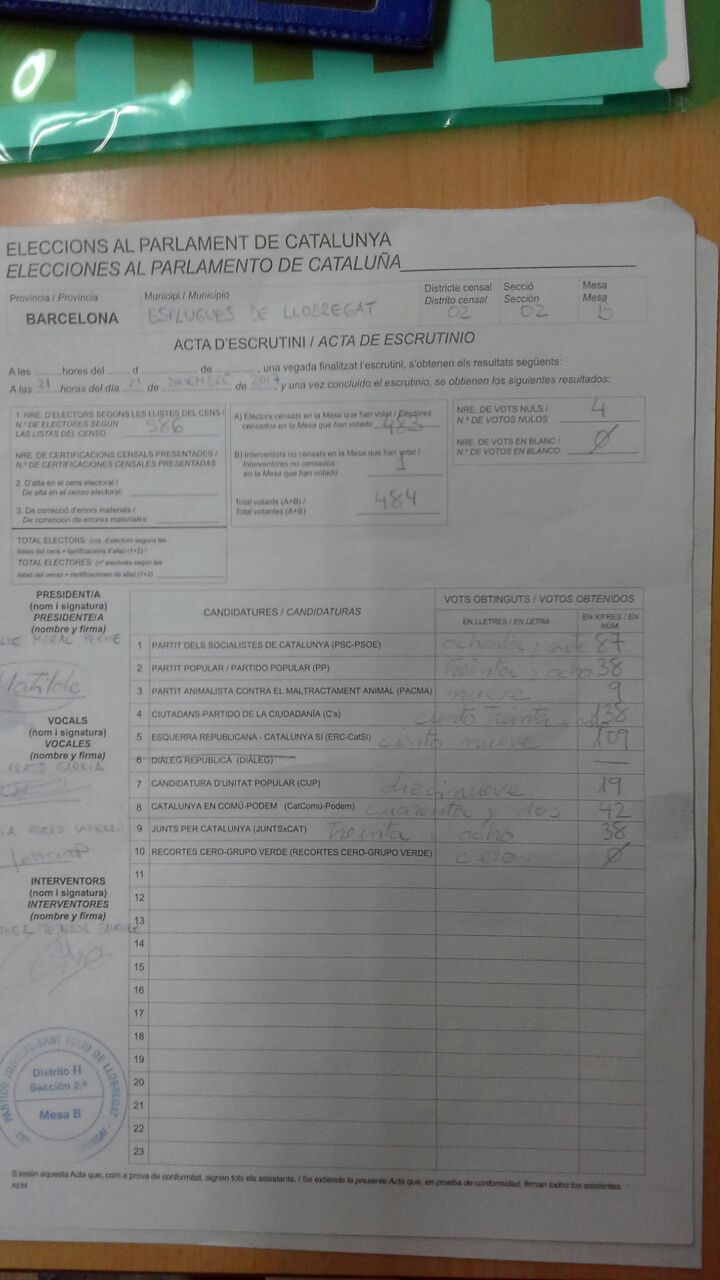 ELECCIONS AL PARLAMENT DE CATALUNYA
ELECCIONES AL PARLAMENTO DE CATALUÑA
Província / Provincia
Municipi / Municipio
Districte censal
Distrito censal
Secció
Sección
Mesa
Mesa
BARCELONA
ESPLUGUES DE LLOBREGAT
02
02
b
ACTA D'ESCRUTINI / ACTA DE ESCRUTINIO
A les hores del d de , una vegada finalitzat l'escrutini, s'obtenen els resultats següents:
A las 21 horas del día 21 de DICIEMBRE de 2017, y una vez concluido el escrutinio, se obtienen los siguientes resultados:
1. NRE. D'ELECTORS SEGONS LES LLISTES DEL CENS /
N.º DE ELECTORES SEGÚN
LAS LISTAS DEL CENSO 586
NRE. DE CERTIFICACIONS CENSALS PRESENTADES /
N.º DE CERTIFICACIONES CENSALES PRESENTADAS
2. D'alta en el cens electoral /
De alta en el censo electoral:
3. De correcció d'errors materials /
De corrección de errores materiales:
TOTAL ELECTORS: (nre. d'electors segons les
llistes del cens + certificacions d'alta) (1+2) /
TOTAL ELECTORES: (nº electores según las
listas del censo + certificaciones de alta) (1+2)
A) Electors censats en la Mesa que han votat / Electores
censados en la Mesa que han votado 483
B) Interventors no censats en la Mesa que han votat /
Interventores no censados
en la Mesa que han votado 1
Total votants (A+B) /
Total votantes (A+B) 484
NRE. DE VOTS NULS /
N.º DE VOTOS NULOS 4
NRE. DE VOTS EN BLANC /
N.º DE VOTOS EN BLANCO Ø
PRESIDENT/A
(nom i signatura)
PRESIDENTE/A
(nombre y firma)
DE MORAL
Matilde
VOCALS
(nom i signatura)
VOCALES
(nombre y firma)
GARCIA
INTERVENTORS
(nom i signatura)
INTERVENTORES
(nombre y firma)
CANDIDATURES / CANDIDATURAS
VOTS OBTINGUTS / VOTOS OBTENIDOS
EN LLETRES / EN LETRA
EN XIFRES / EN NÚM.
1 PARTIT DELS SOCIALISTES DE CATALUNYA (PSC-PSOE) ochenta y siete 87
2 PARTIT POPULAR / PARTIDO POPULAR (PP) treinta y ocho 38
3 PARTIT ANIMALISTA CONTRA EL MALTRACTAMENT ANIMAL (PACMA) nueve 9
4 CIUTADANS-PARTIDO DE LA CIUDADANÍA (C's) ciento treinta y ocho 138
5 ESQUERRA REPUBLICANA - CATALUNYA SÍ (ERC-CatSí) ciento nueve 109
6 DIÀLEG REPÚBLICA (DIÀLEG) —
7 CANDIDATURA D'UNITAT POPULAR (CUP) diecinueve 19
8 CATALUNYA EN COMÚ-PODEM (CatComú-Podem) cuarenta y dos 42
9 JUNTS PER CATALUNYA (JUNTSxCAT) treinta y ocho 38
10 RECORTES CERO-GRUPO VERDE (RECORTES CERO-GRUPO VERDE) cero Ø
11
12
13
14
15
16
17
18
19
20
21
22
23
PARTIDO JUDICIAL SANT FELIU DE LLOBREGAT
Distrito II
Sección 2.ª
Mesa B
S'estén aquesta Acta que, com a prova de conformitat, signen tots els assistents. / Se extiende la presente Acta que, en prueba de conformidad, firman todos los asistentes.
AEM